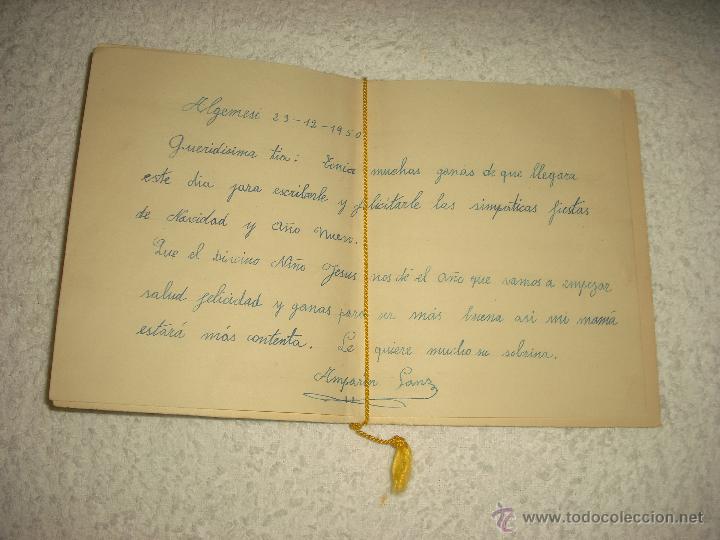 Algemesi 23-12-1950
Queridisima tia: Tenia muchas ganas de que llegara
este dia para escribirle y felicitarle las simpáticas fiestas
de Navidad y Año Nuevo.
Que el Divino Niño Jesus nos dé el año que vamos a empezar
salud felicidad y ganas para ser más buena asi mi mamá
estará más contenta. Le quiere mucho su sobrina.
Amparin Sanz
www.todocoleccion.net